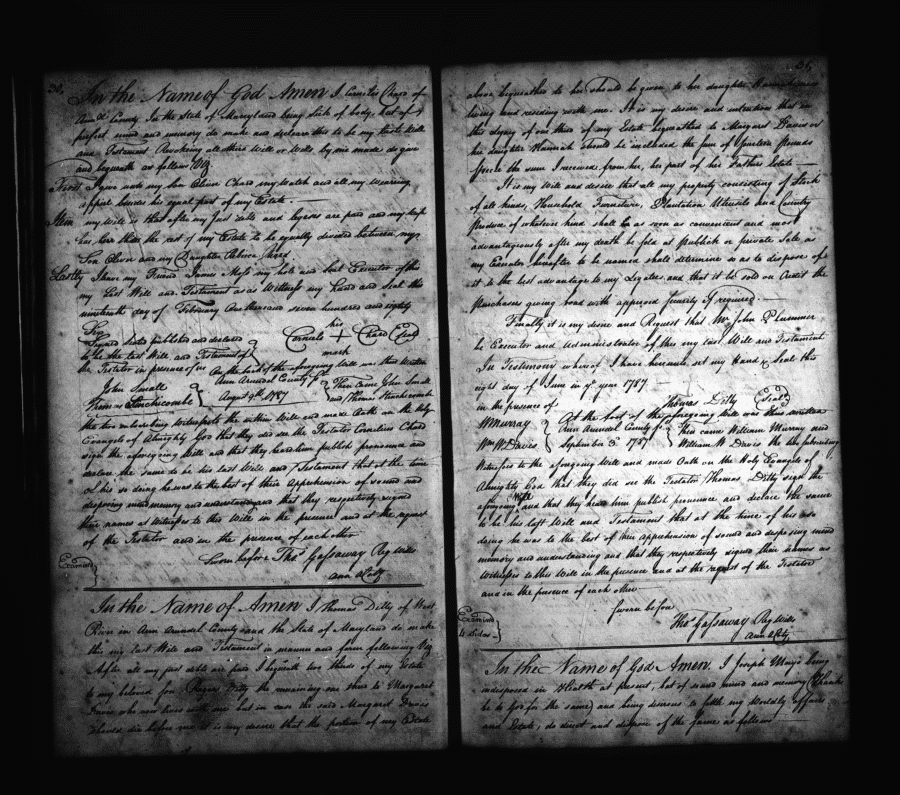 30,
In the Name of God Amen I Cornelas Chard of
Ann Al County In the State of Maryland being Sick of body, but of
perfect mind and memory do make and declare this to be my this Will
and Testament Revoking all others Will or Wills by me made do give
and bequeath as follows Viz
First I give unto my Son Oliver Chard my Watch and all my wearing
apparl besides his equal part of my Estate
Item my Will is that after my Just debts and legeses are paid and my
has her thirds the rest of my Estate to be equally devided between my
Son Oliver and my Daughter Chard
Lastly I have my Friend James Moss my hole and but Executor of this
my Last Will and Testament as as Witness my Hand and Seal this
nineteenth day of February One thousand seven hundred and eighty
Signed Seled published and declared
to be the last Will and Testament of
the Testator in presence of us
his
Cornals + Chard Seal
mark
John Small
Thomas Stinchicombe
On the back of the aforegoing Will was thus Written
Ann Arundel County Sct
August 9th 1787
Then came John Small
and Thomas Stinchcombe
the two subscribing Witnesses to the within Will and made Oath on the Holy
Evangels of Almighty God that they did see the Testator Cornelius Chard
sign the aforegoing Will and that they heard him publish pronounce and
declare the same to be his last Will and Testament that at the time
of his so doing he was to the best of their Apprehension of sound and
disposing mind memory and understanding and that they respectively signed
their names as Witnesses to this Will in the presence and at the request
of the Testator and in the presence of each other
Sworn before Thos Gassaway Reg Wills
Ann Al Cty
Examined
In the Name of Amen I Thomas Dilly of West
River in Ann Arundel County and the State of Maryland do make
this my last Will and Testament in manner and form following Viz
After all my just debts are paid I bequeath two thirds of my Estate
to my beloved Son Dilly the remaining one third to Margaret
Davis who now lives with me but in case the said Margaret Davis
should die before me it is my desire that the portion of my Estate
31,
above bequeathed to her should be given to her daughter Hannah now
living and residing with me. It is my desire and intentions that in
the legacy of one third of my Estate bequeathed to Margaret Davis or
her daughter Hannah should be included the sum of Pounds
Specie the sum I received from her, her part of her Fathers Estate
It is my Will and desire that all my property consisting of Stock
of all kinds, Household Furniture, Plantation Utensils and Country
Produce of whatever kind shall be as soon as convenient and most
advantageously after my death be sold at Publick or private Sale as
my Executor hereafter to be named shall determine so as to dispose of
it to the best advantage to my Legatees and that it be sold on Credit the
Purchasers giving bond with approved Security if required
Finally it is my desire and Request that Mr John Plummer
be Executor and Administrator of this my last Will and Testament
In Testimony whereof I have hereunto set my Hand & Seal this
eight day of June in ye year 1787
in the presence of
Thomas Dilly Seal
WMurray
Wm W Davis
At the foot of the aforegoing Will was thus written
Ann Arundel County Sct
September 3d 1787
Then came William Murray and
William W Davis the two Subscribing
Witnesses to the aforegoing Will and made Oath on the Holy Evangels of
Almighty God that they did see the Testator Thomas Dilly sign the
aforegoing Will and that they heard him publish pronounce and declare the same
to be his last Will and Testament that at the time of his so
doing he was to the best of their apprehension of sound and disposing mind
memory and understanding and that they respectively signed their names as
Witnesses to this Will in the presence and at the request of the Testator
and in the presence of each other
Sworn before
Thos Gassaway Reg Wills
Ann Al Cty
Examined
In the Name of God Amen. I Joseph Mays being
indisposed in Health at present, but of sound mind and memory (Thanks
be to God for the same) and being desirous to settle my Worldly affairs
and Estate, do direct and dispose of the same as follows